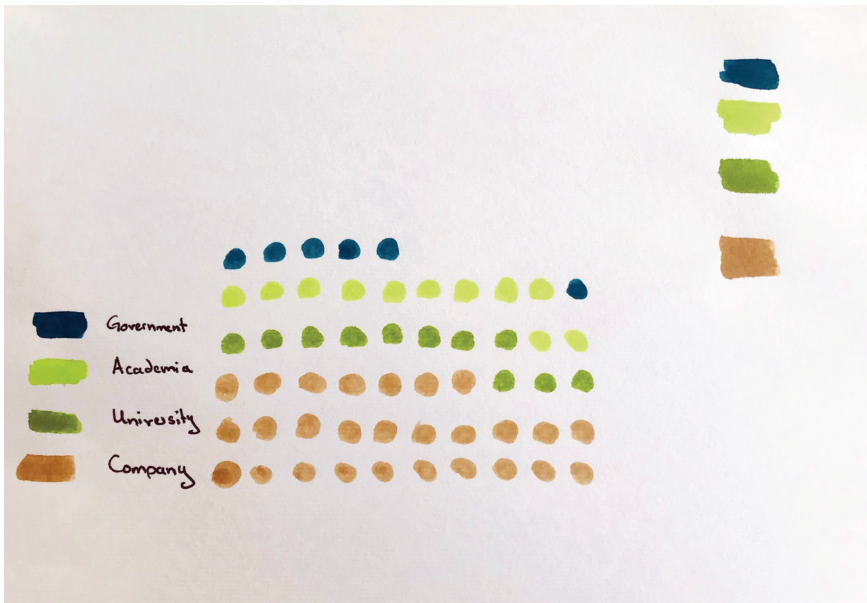 Government
Academia
University
Company